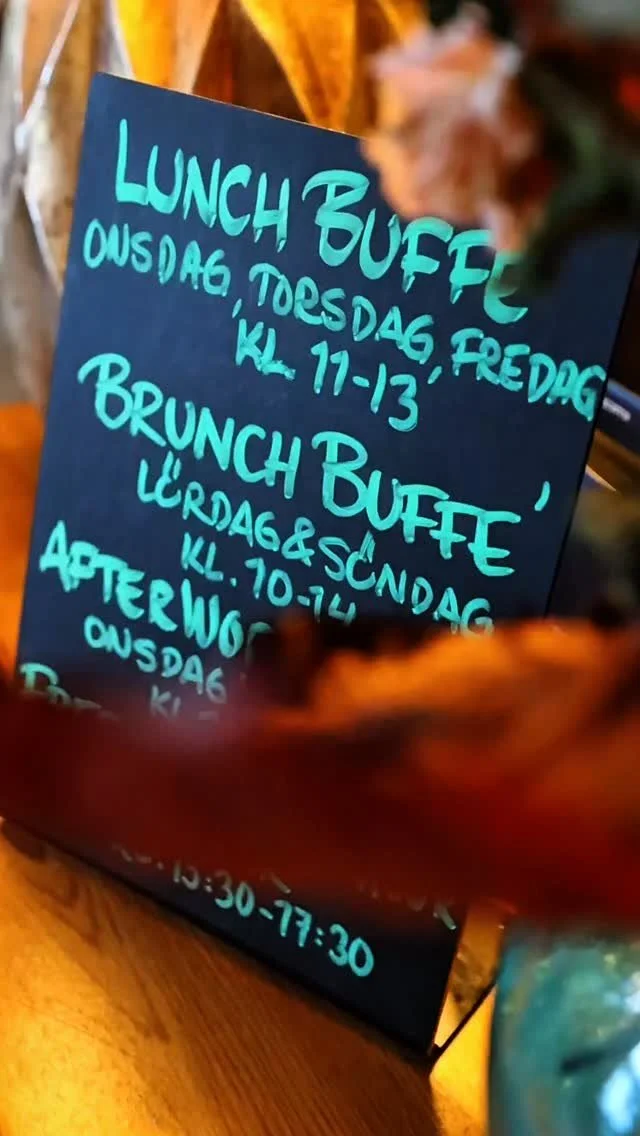 LUNCH BUFFE
ONSDAG, TORSDAG, FREDAG
KL 11-13
BRUNCH BUFFE'
LÖRDAG & SÖNDAG
KL. 10-14
ONSDAG
15:30-17:30